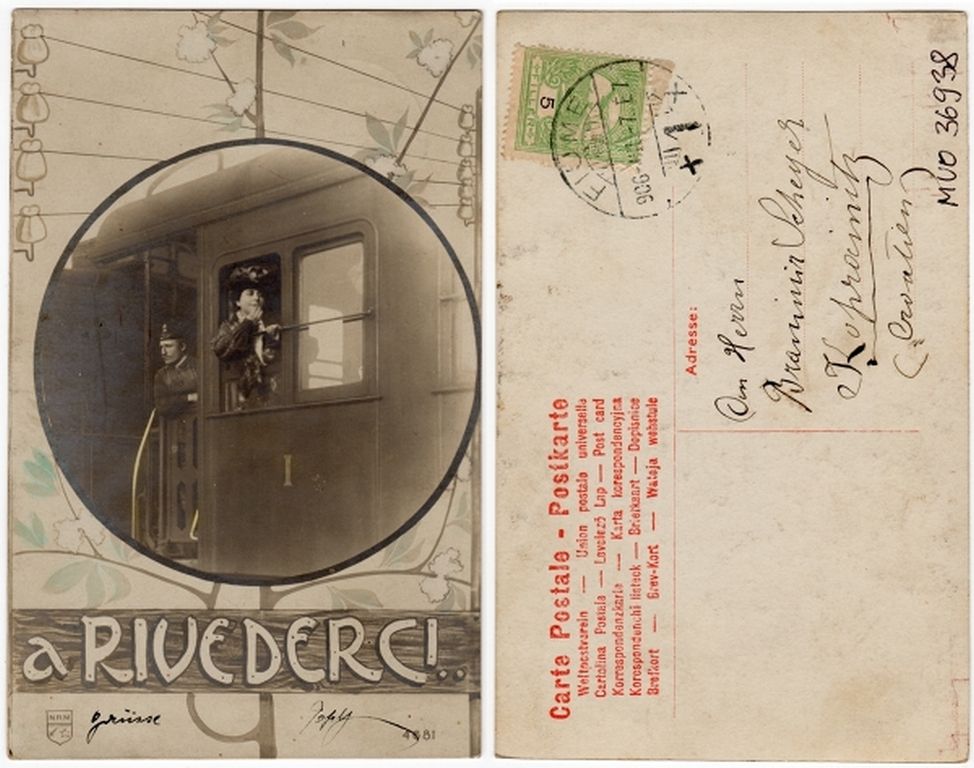 I
a RIVEDERCI..
NRM
Grüsse
4681
5
FILLÉR
FIUME
906
1
Adresse:
An Herrn
Branimir Scheyer
Kopreinitz
(Croatien)
MUO 36938
Carte Postale - Postkarte
Weltpostverein — Union postale universelle
Cartolina Postale — Levelező Lap — Post card
Korrespondenzkarte — Karta korespondencyjna
Korespondenchi listeck — Briefkaart — Dopisnice
Brefkort — Brev-Kort — Wateja wehstule